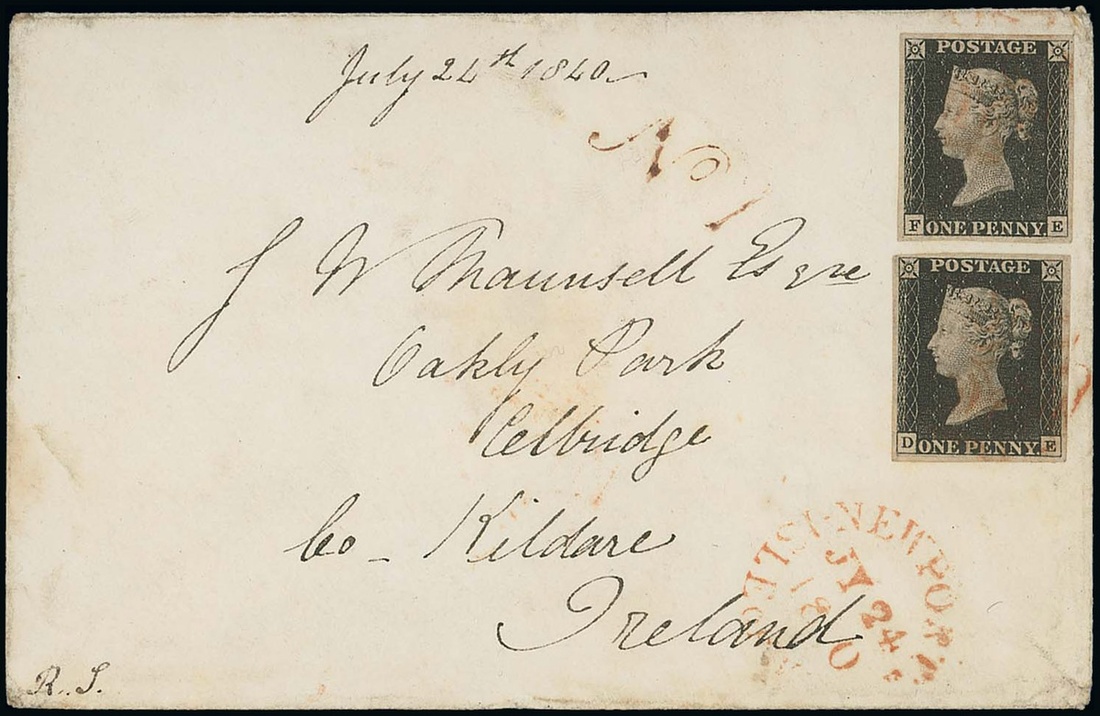 July 24th 1840
No 1
POSTAGE
F ONE PENNY. E
POSTAGE
D ONE PENNY. E
J W Maunsell Esqre
Oakly Park
Celbridge
Co - Kildare
Ireland
NEWPORT
JY 24
1840
R. S.